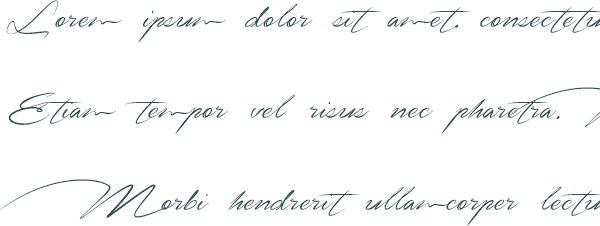 Lorem ipsum dolor sit amet, consectetu
Etiam tempor vel risus nec pharetra.
Morbi hendrerit ullamcorper lectu